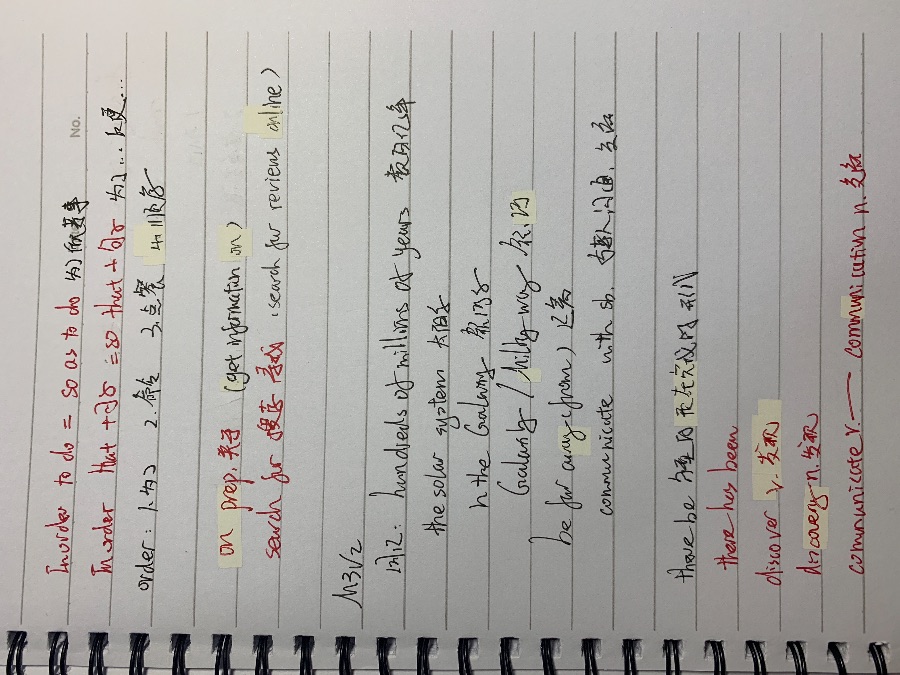 No.
Inorder to do = so as to do 为了做某事
Inorder that + 句子 = so that + 句子 为了...以便...
order: 1.为了 2.命令 3.点餐 4.顺序
on prep. 关于 (get information on)
search for 搜索 寻找 (search for reviews online)
M3U2
词汇: hundreds of millions of years 数百亿年
the solar system 太阳系
n the Galaxy 银河系
Galaxy / Milky way 银河
be far away (from) 远离
communicate with sb. 与某人沟通, 交流
there be 句型的现在完成时
there has been
discover v. 发现
discovery n. 发现
communicate v. — communication n. 交流